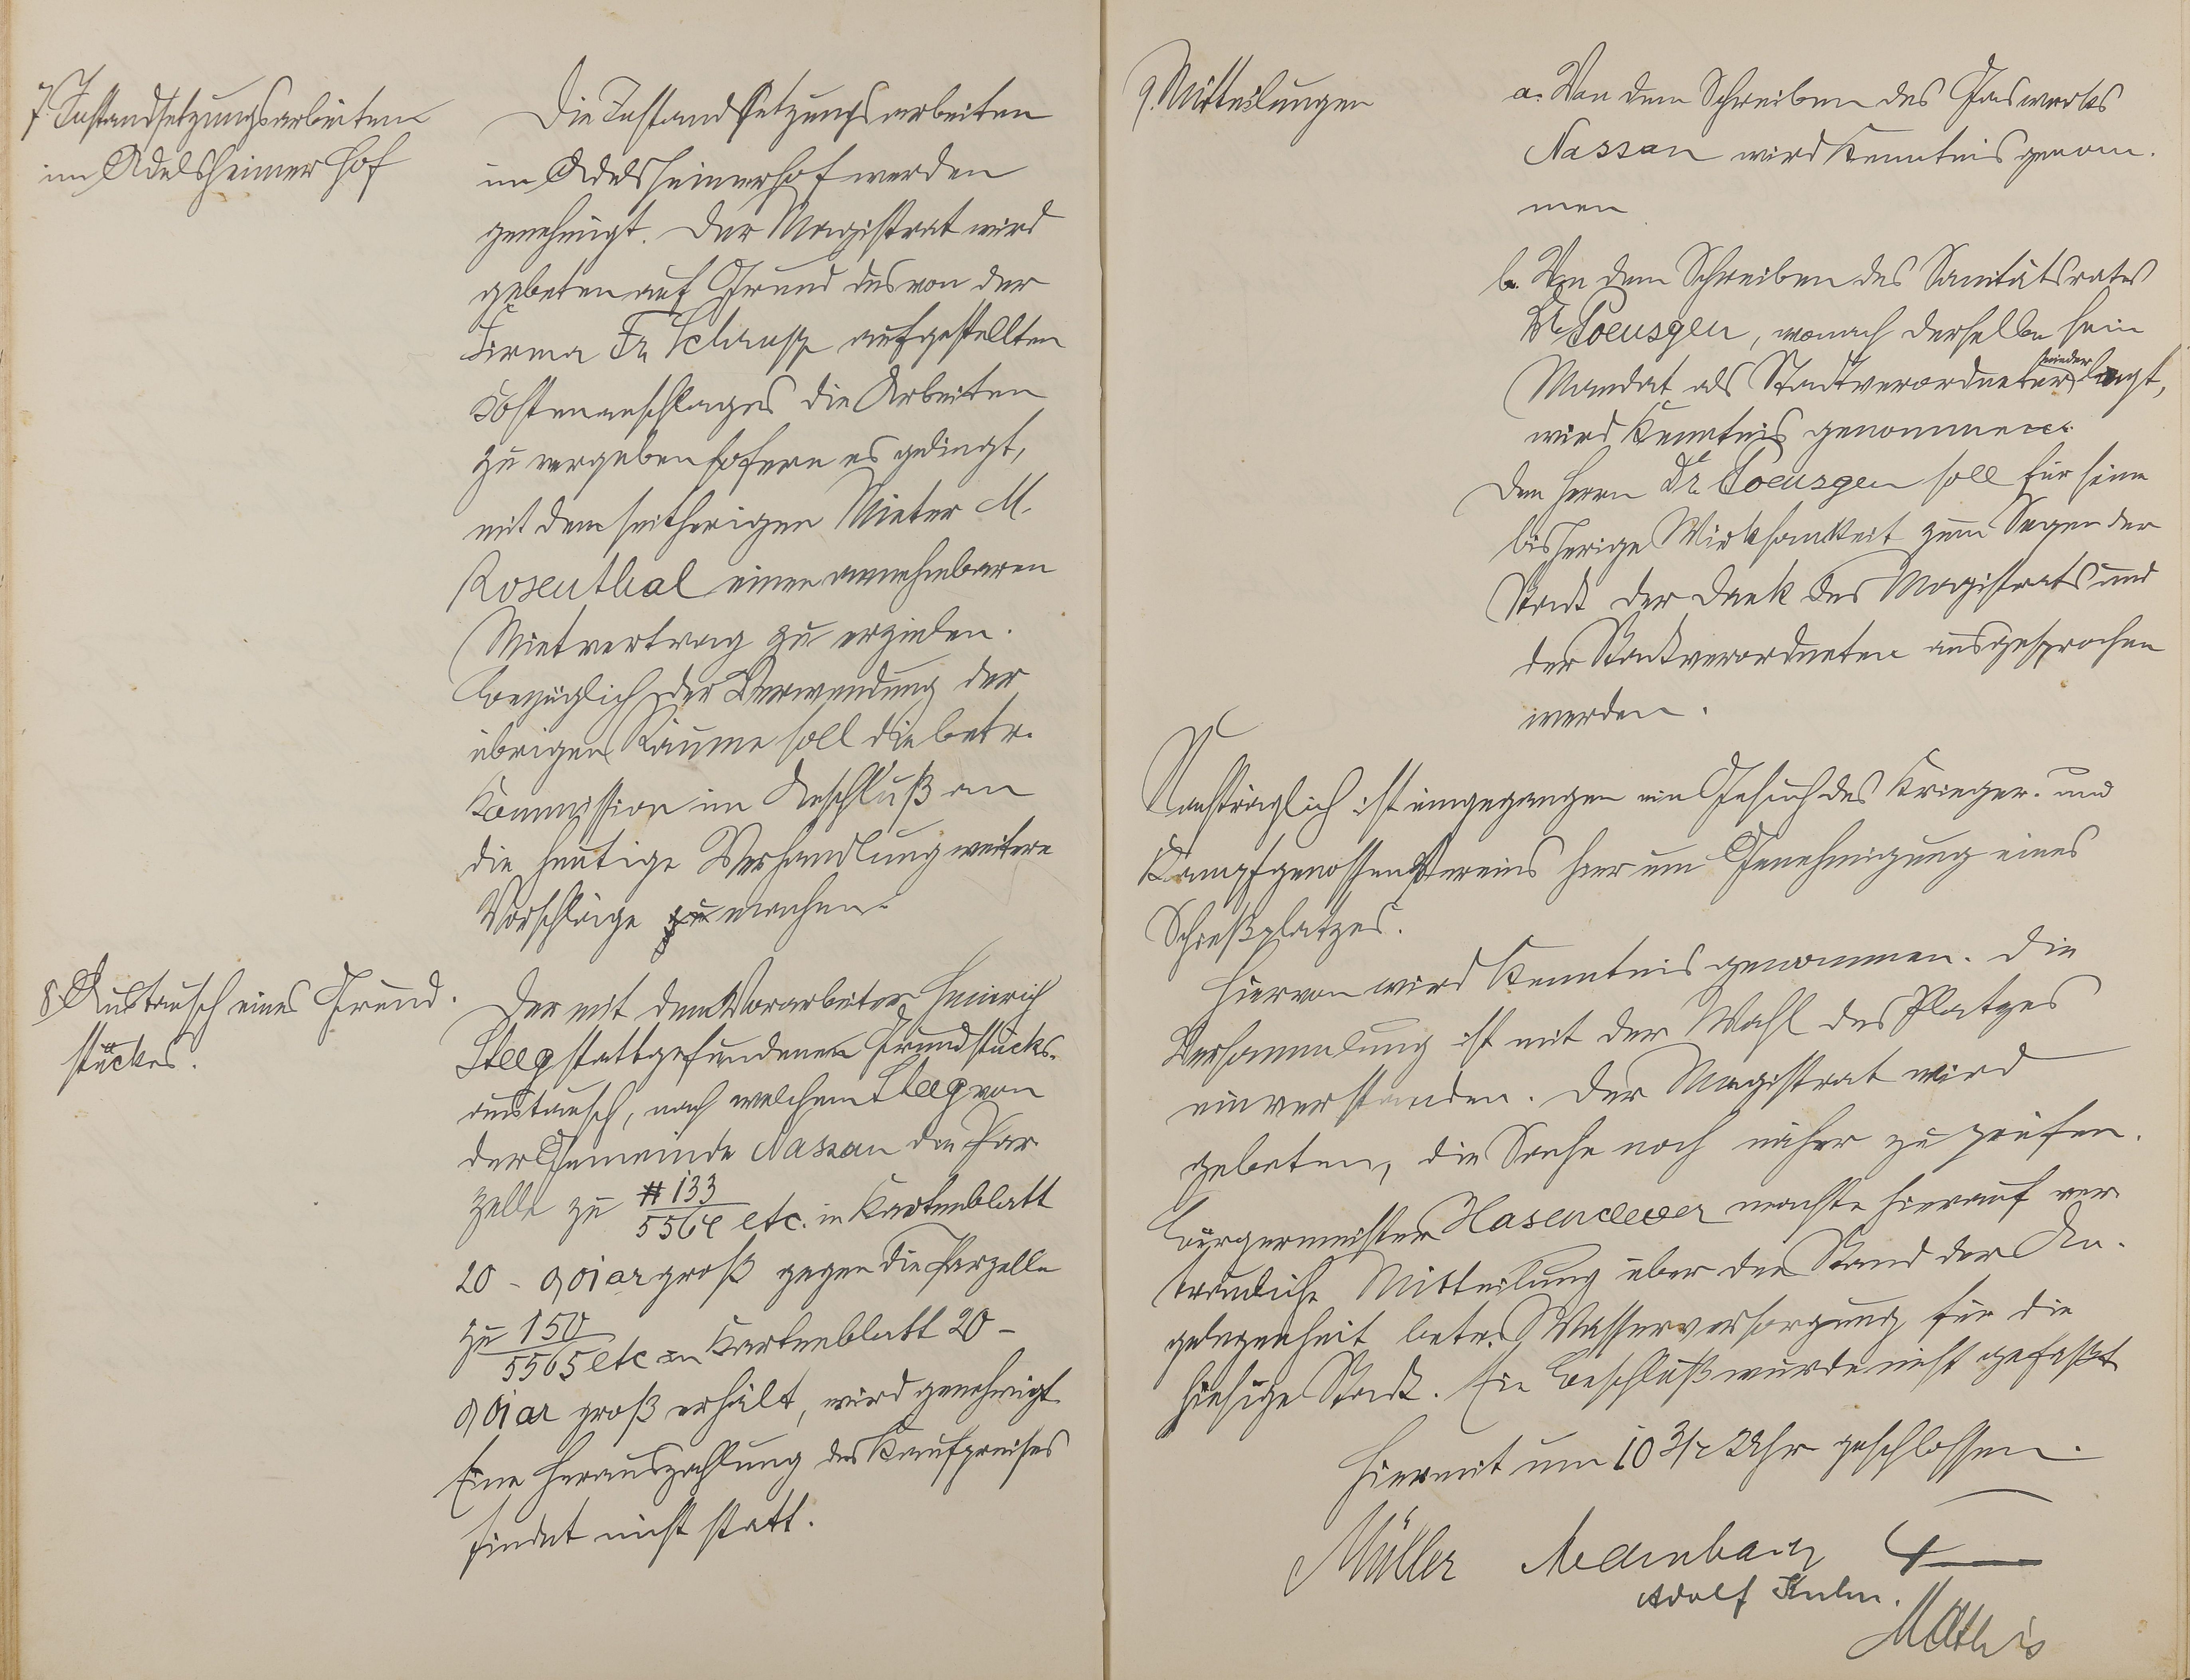 7. Instandsetzungsarbeiten
im Adelsheimer Hof
Die Instandsetzungsarbeiten
im Adelsheimerhof werden
genehmigt. Der Magistrat wird
gebeten auf Grund des von der
Firma Fr. Schrupp aufgestellten
Kostenanschlages die Arbeiten
zu vergeben sofern es gelingt,
mit dem seitherigen Mieter M.
Rosenthal einen annehmbaren
Mietvertrag zu erzielen.
Bezüglich der Verwendung der
übrigen Räume soll die betr.
Kommission im Anschluß an
die heutige Verhandlung weitere
Vorschläge zu machen.
8. Austausch eines Grund-
stückes.
Der mit dem Vorarbeiter Heinrich
Steeg stattgefundenen Grundstücks-
austausch, nach welchem Steeg von
der Gemeinde Nassau die Par
zelle zu # 133
5564 etc. in Kartenblatt
20 - 0,01 ar groß gegen die Parzelle
zu 150
5565 etc in Kartenblatt 20 -
0,01 ar groß erhält, wird genehmigt.
Eine Herauszahlung des Kaufpreises
findet nicht statt.
9. Mitteilungen
a. Von dem Schreiben des Gaswerks
Nassau wird Kenntnis genom-
men
b. Von dem Schreiben des Sanitätsrates
Dr. Poensgen, wonach derselbe sein
Mandat als Stadtverordneter niederlegt,
wird Kenntnis genommen.
Dem Herrn Dr. Poensgen soll für seine
bisherige Wirksamkeit zum Segen der
Stadt der Dank des Magistrats und
der Stadtverordneten ausgesprochen
werden.
Nachträglich ist eingegangen ein Gesuch des Krieger- und
Kampfgenossen Vereins hier um Genehmigung eines
Schießplatzes.
Hiervon wird Kenntnis genommen. Die
Versammlung ist mit der Wahl des Platzes
einverstanden. Der Magistrat wird
gebeten, die Sache noch näher zu prüfen.
Bürgermeister Hasenclever machte hierauf ver
trauliche Mitteilung über den Stand der An-
gelegenheit betr. Wasserversorgung für die
hiesige Stadt. Ein Beschluß wurde nicht gefaßt
Hiermit um 10 3/4 Uhr geschlossen.
Müller
Adolf Kuhn.
Mathis